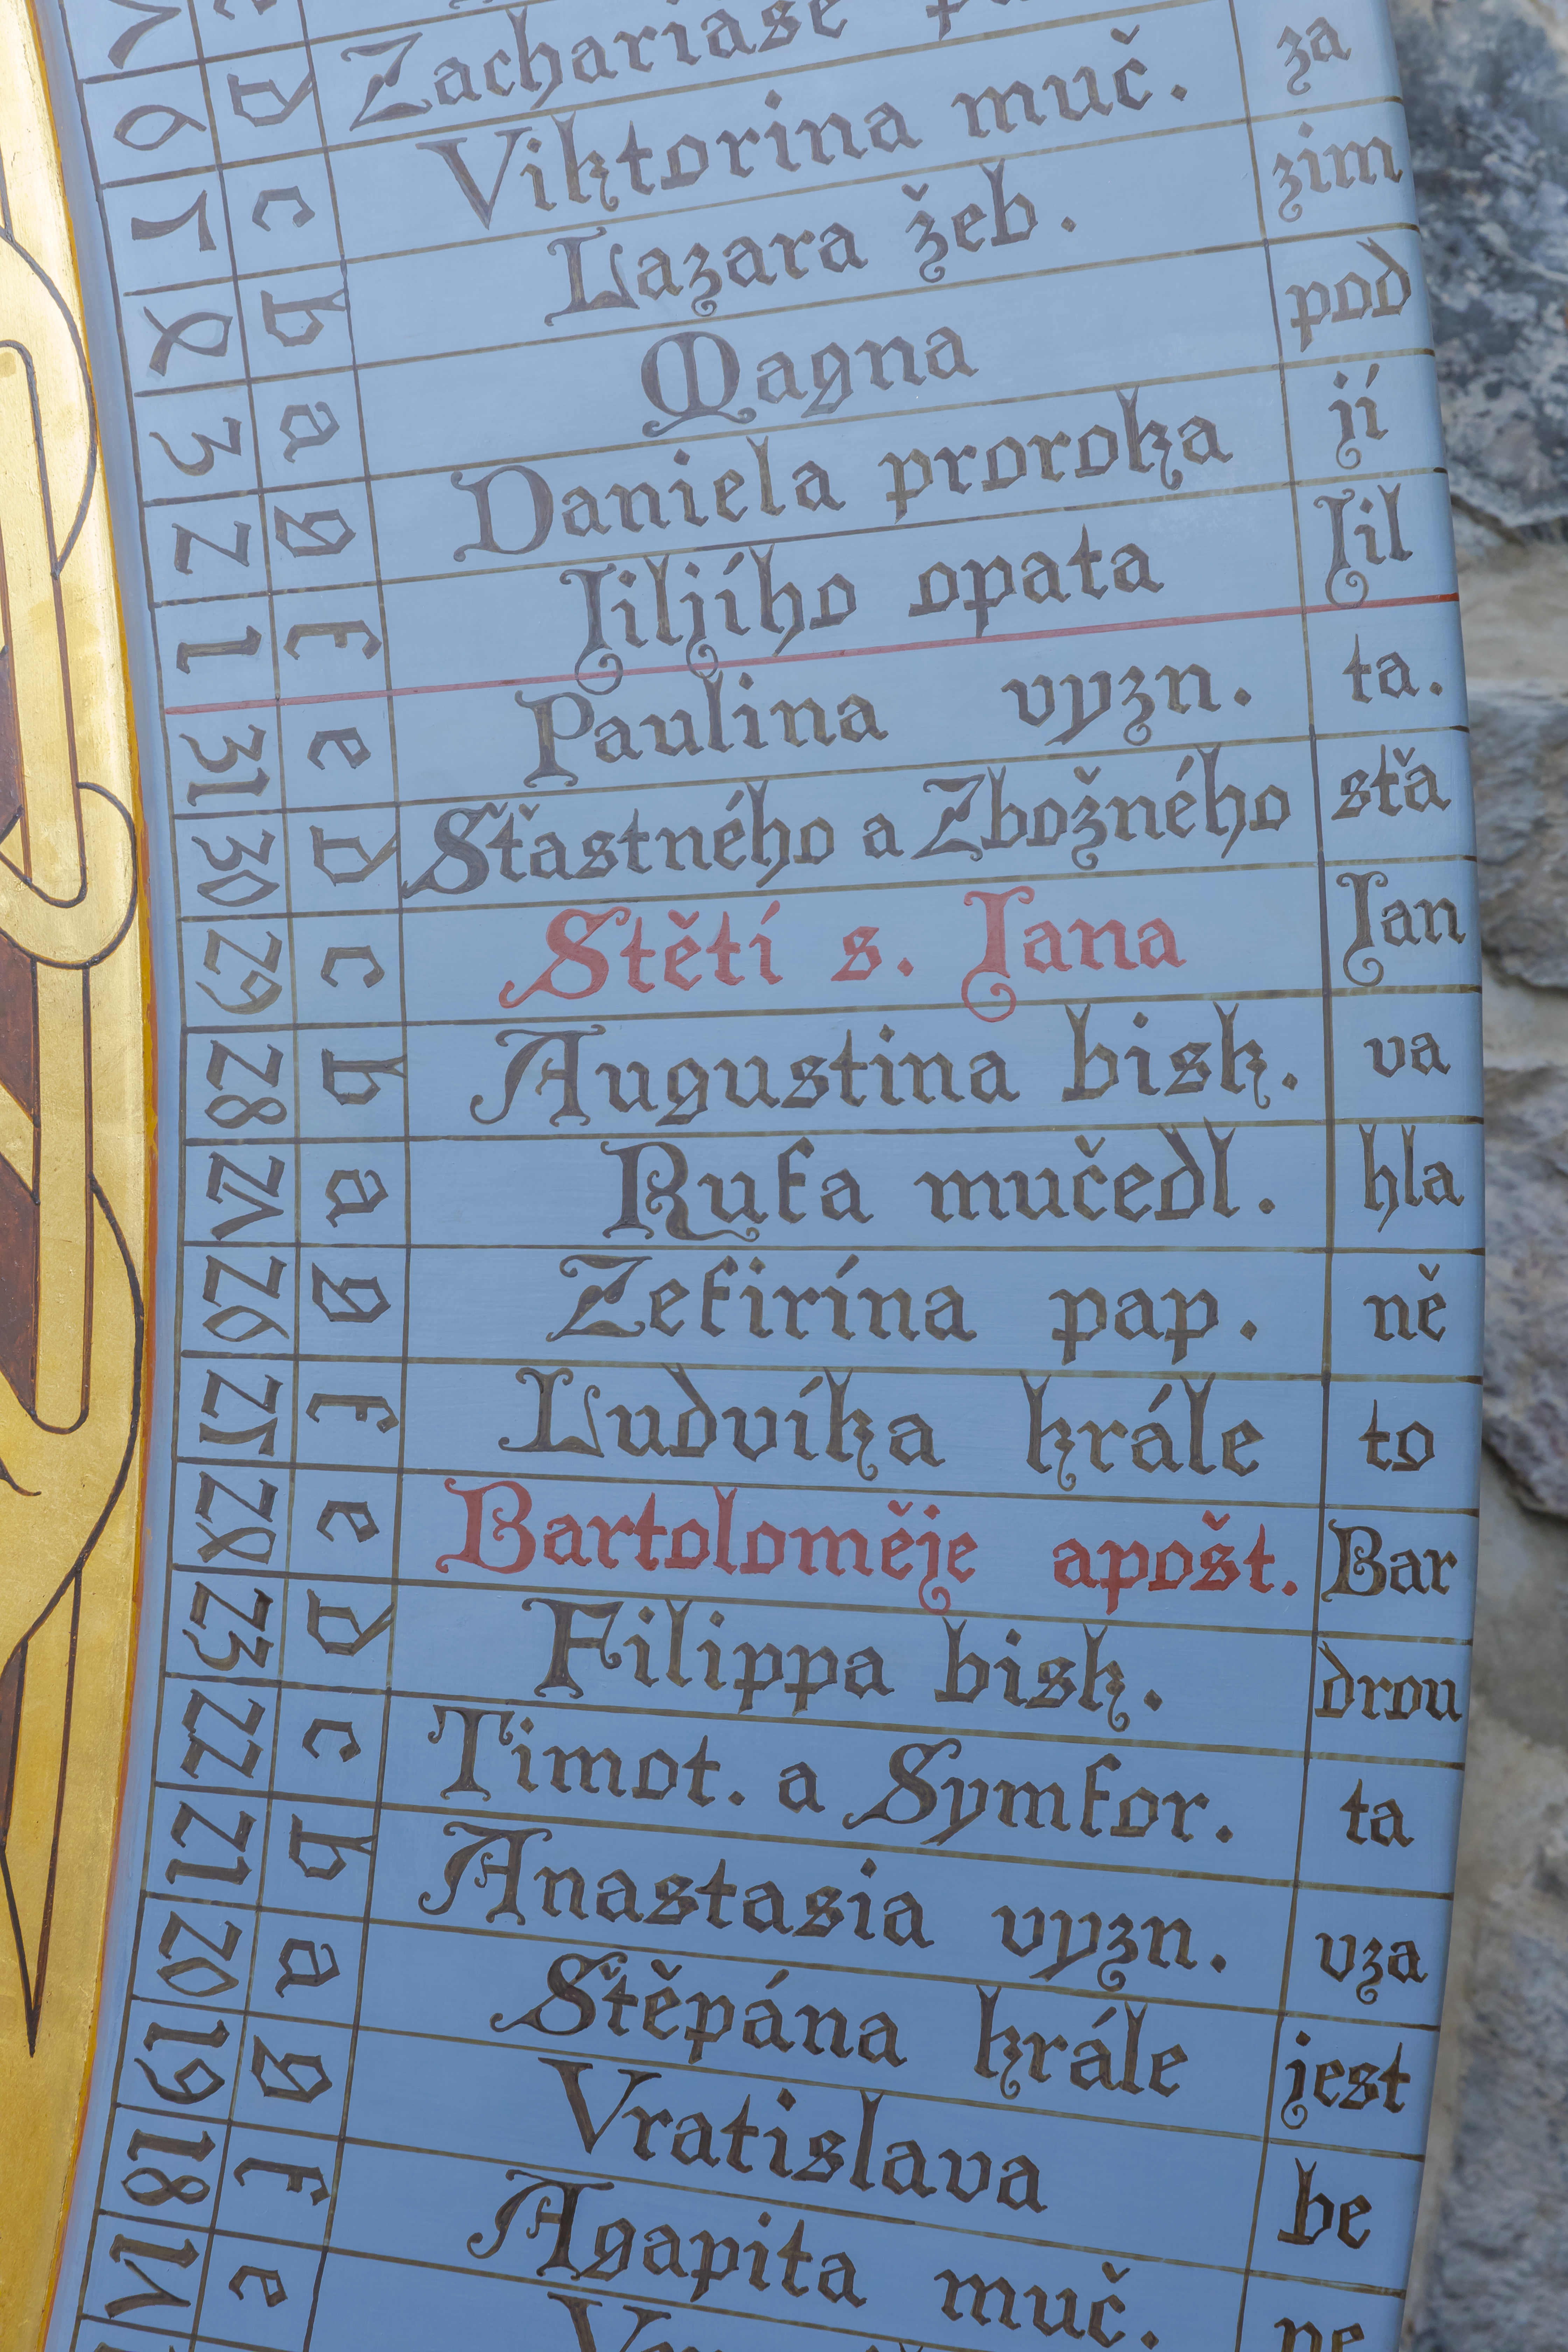 7
6 d Zachariáše
5 c Viktorina muč. za
4 b Lazara žeb. zim
3 a Magna pod
2 g Daniela proroka jí
1 f Jiljího opata Jil
31 e Paulina vyzn. ta.
30 d Sťastného a Zbožného sťa
29 c Stětí s. Jana Jan
28 b Augustina bisk. va
27 a Rufa mučedl. hla
26 g Zefirína pap. ně
25 f Ludvíka krále to
24 e Bartoloměje apošt. Bar
23 d Filippa bisk. drou
22 c Timot. a Symfor. ta
21 b Anastasia vyzn. vza
20 a Štěpána krále jest
19 g Vratislava be
18 f Agapita muč. ne
17 e